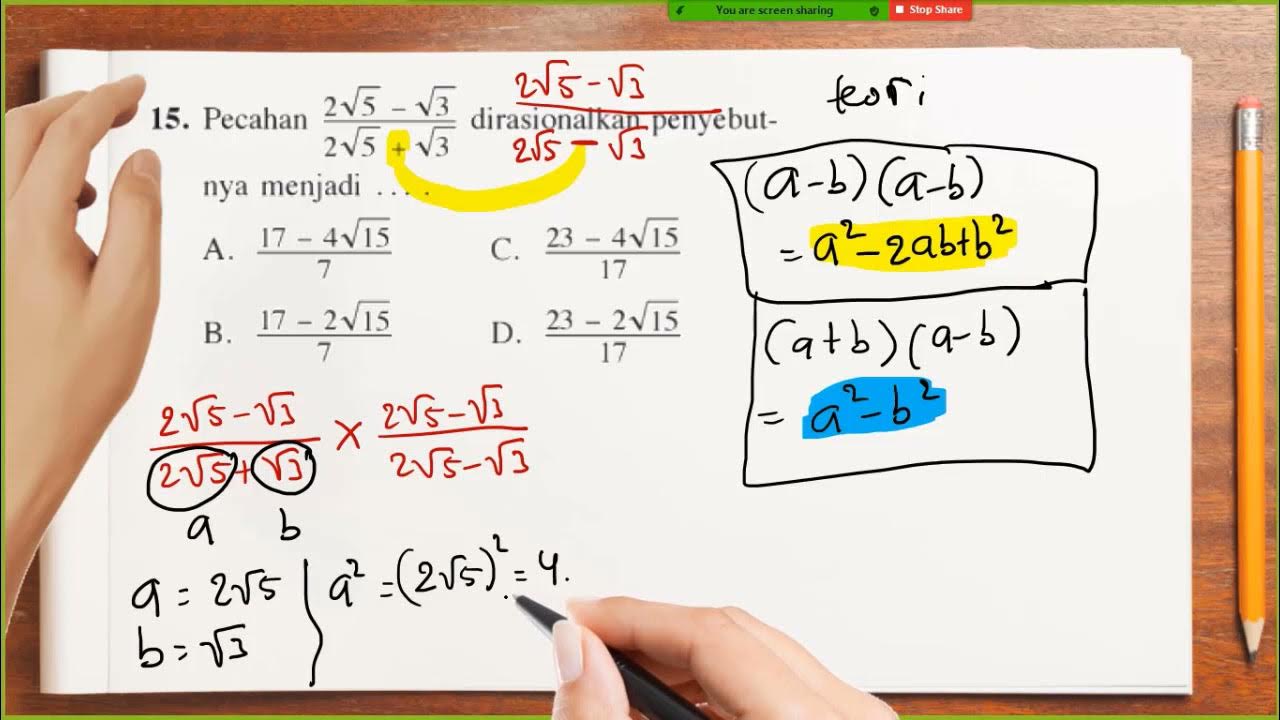 You are screen sharing
Stop Share
15. Pecahan (2√5 − √3)/(2√5 + √3) dirasionalkan penyebut-
nya menjadi . . . .
A. (17 − 4√15)/7
C. (23 − 4√15)/17
B. (17 − 2√15)/7
D. (23 − 2√15)/17
2√5 − √3
2√5 − √3
teori
(a−b)(a−b)
= a² − 2ab + b²
(a+b)(a−b)
= a² − b²
(2√5 − √3)/(2√5 + √3) × (2√5 − √3)/(2√5 − √3)
a b
a = 2√5
b = √3
a² = (2√5)² = 4.